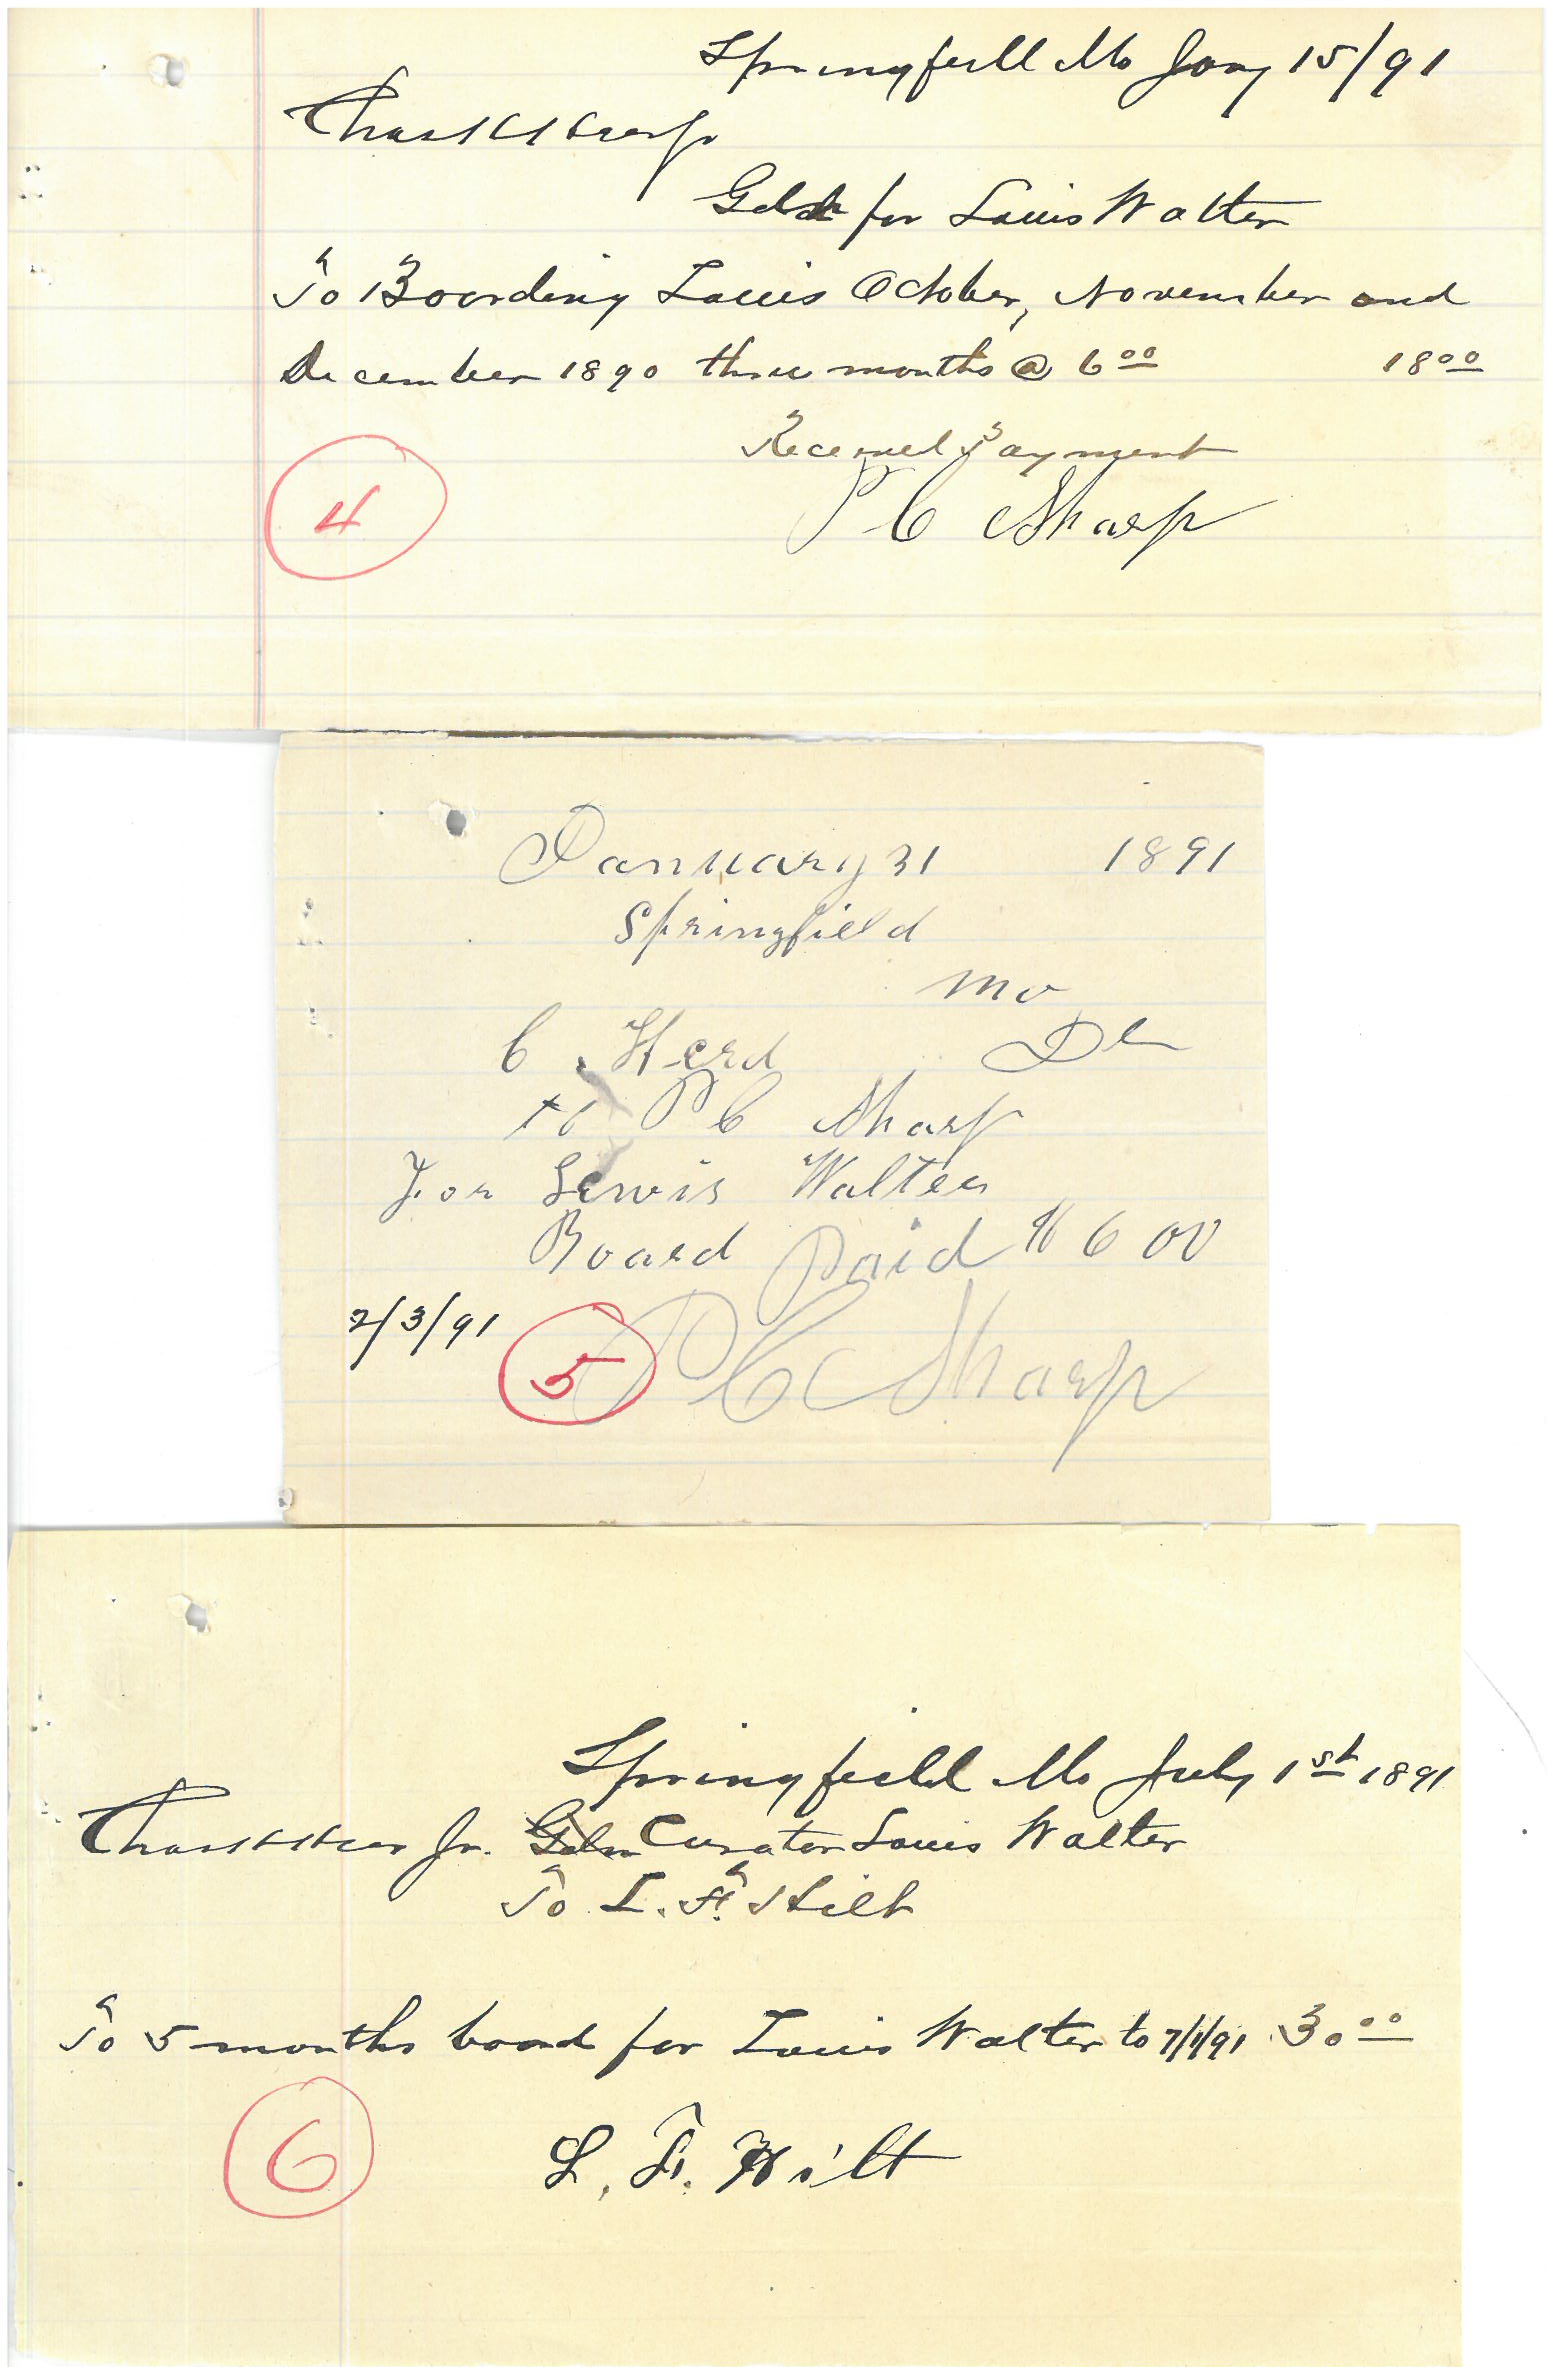 Springfield Mo Jany 15/91
Chas
for Louis Walter
To Boarding Louis October, November and
December 1890 three months @ 6 00 18 00
Received Payment
P C Sharp
4
January 31 1891
Springfield
Mo
C. Herd Dr
to P C Sharp
For Lewis Walter
Board Paid $ 6 00
2/3/91
5 P C Sharp
Springfield Mo July 1st 1891
Chas Jr. Curator Louis Walter
To L. F. Hilt
To 5 months board for Louis Walter to 7/1/91 30 00
6
L. F. Hilt